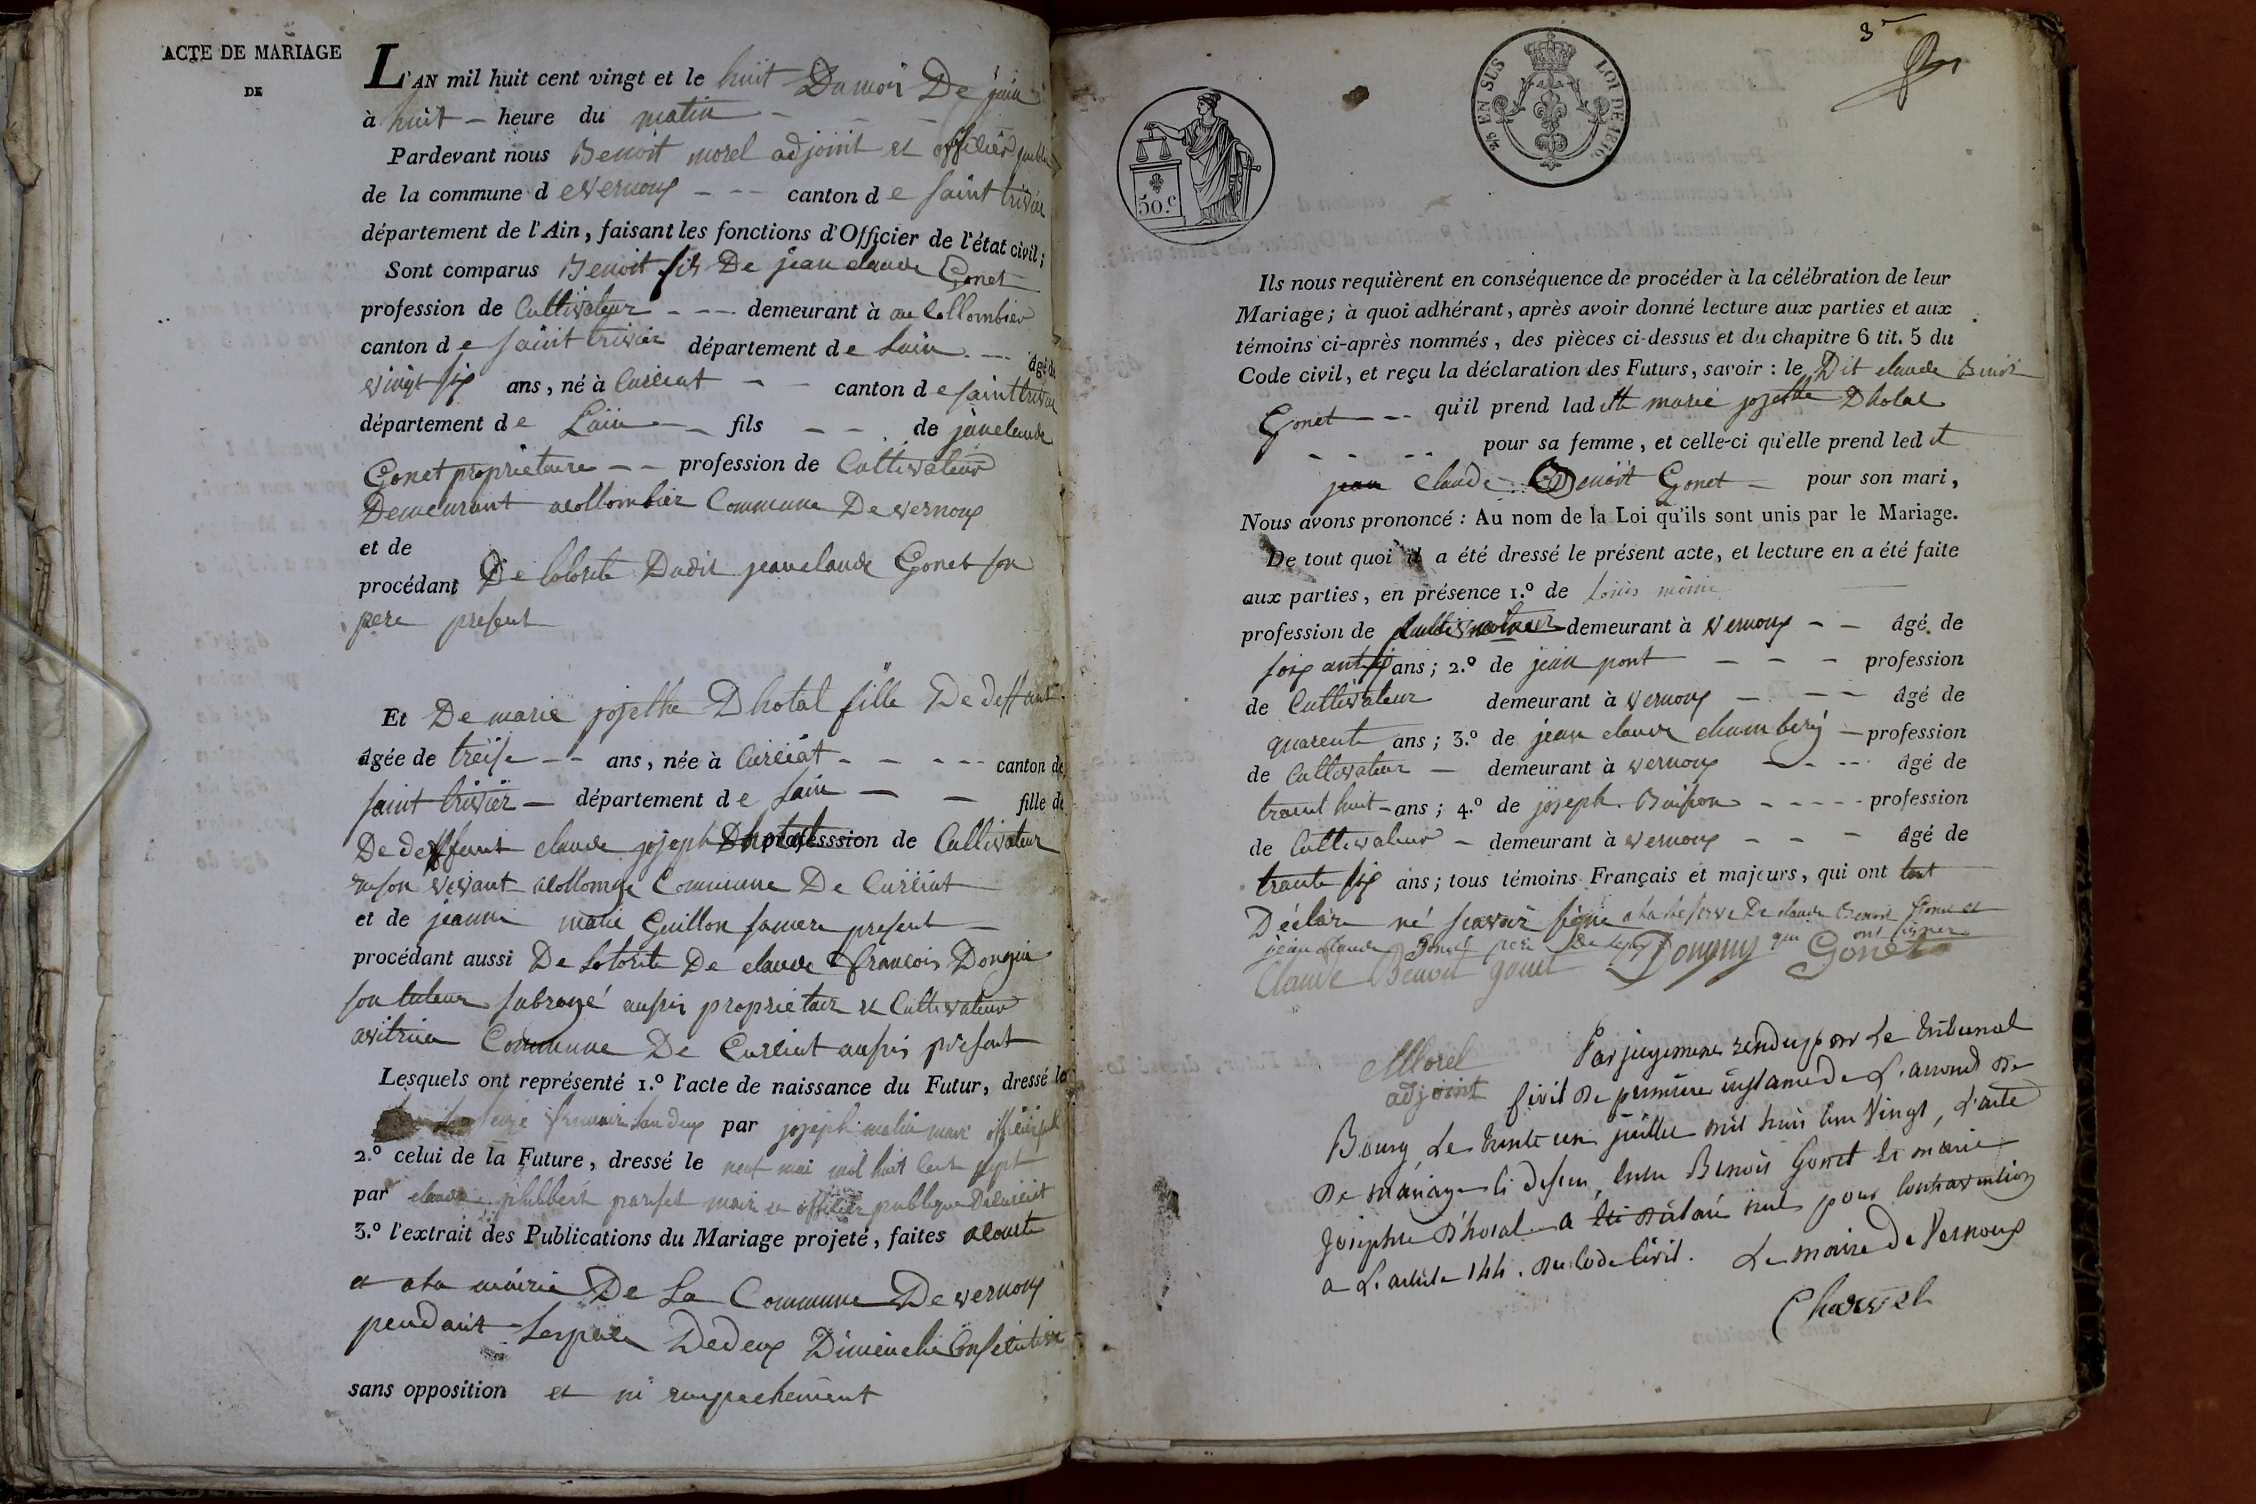 ACTE DE MARIAGE
DE
L'AN mil huit cent vingt et le huit Du mois De juin
à huit heure du matin
Pardevant nous Benoit morel adjoint et officier public
de la commune de vernoux canton de saint trivier
département de l'Ain, faisant les fonctions d'Officier de l'état civil;
Sont comparus Benoit fils De jean claude Gonet
profession de Cultivateur demeurant à au Collombier
canton de saint trivier département de Lain âgé de
vingt six ans, né à Curciat canton de saint trivier
département de Lain fils de janclaude
Gonet proprietaire profession de Cultivateur
Demeurant acollombier Commune De vernoux
et de
procédant De lotorite Dudit jeanclaude Gonet son
pere present
Et De marie josethe Dhotal fille De deffant
âgée de treise ans, née à Curciat canton de
saint trivier département de Lain fille de
De deffunt claude joseph Dhotal profession de Cultivateur
de son vivant Commune De Curciat
et de jeanne marie Guillon samere present
procédant aussi De Lotorite De claude francois Dongui
son tuteur subrogé aussi proprietair et Cultivateur
Commune De Curciat aussi present
Lesquels ont représenté 1.º l'acte de naissance du Futur, dressé le
par joseph
2.º celui de la Future, dressé le neuf mai mil huit Cent sept
par claude philbert mair et officier publique De Curciat
3.º l'extrait des Publications du Mariage projeté, faites
et ala mairie De La Commune De vernoux
pendant Lespace De deux Dimenche Consécutive
sans opposition et ni empechement
3
25 EN SUS LOI DE 1816.
50.c
Ils nous requièrent en conséquence de procéder à la célébration de leur
Mariage; à quoi adhérant, après avoir donné lecture aux parties et aux
témoins ci-après nommés, des pièces ci-dessus et du chapitre 6 tit. 5 du
Code civil, et reçu la déclaration des Futurs, savoir: le Dit claude Benoit
Gonet qu'il prend laditte marie josethe Dhotal
pour sa femme, et celle-ci qu'elle prend ledit
jean Claude Benoit Gonet pour son mari,
Nous avons prononcé: Au nom de la Loi qu'ils sont unis par le Mariage.
De tout quoi il a été dressé le présent acte, et lecture en a été faite
aux parties, en présence 1.º de Louis
profession de Cultivateur demeurant à vernoux âgé de
soix ant six ans; 2.º de jean pont profession
de Cultivateur demeurant à vernoux âgé de
quarente ans; 3.º de jean claude chamberý profession
de Cultivateur demeurant à vernoux âgé de
trant huit ans; 4.º de joseph Buison profession
de Cultivateur demeurant à vernoux âgé de
trante six ans; tous témoins Français et majeurs, qui ont tout
Déclare né scavoir signe ala reserve De claude Benoit Gonet et
jean claude Gonet pere qui ont signer
Claude Benoit gonet Donguy Gonet
Morel
adjoint
Par jugement rendu par Le tribunal
Civil De première instance de L'arrond de
Bourg, Le trente un juillet mil huit Cent Vingt, L'acte
De mariage ci dessus, entre Benoit Gonet et marie
Josephte D'hotal a été déclaré nul pour Contravention
a L'article 144. Du Code Civil. Le maire de Vernoux
Charvet